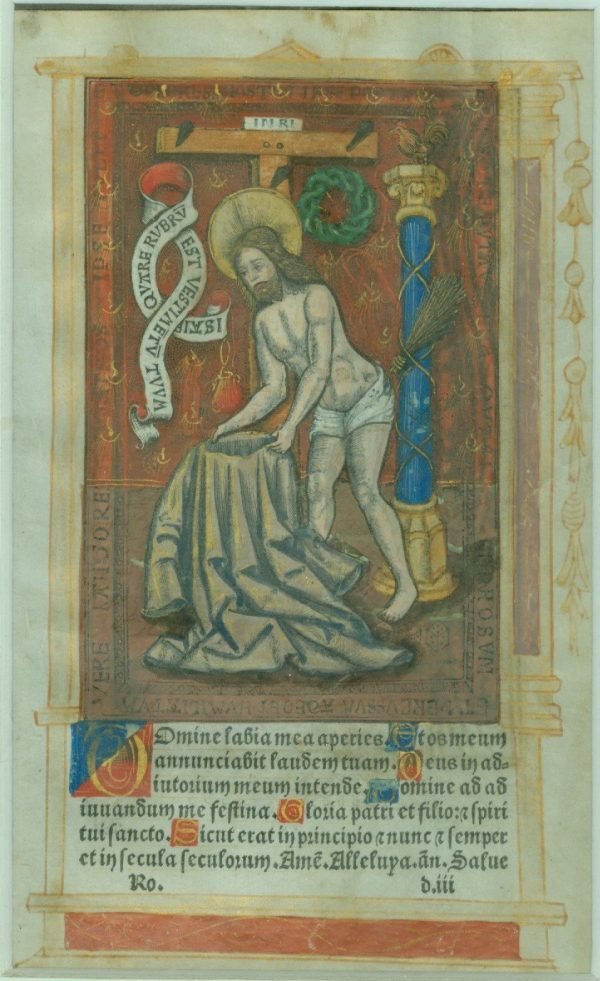 INRI
QVARE RVBRŪ
EST VESTIMĒTŪ TVVM
ISAIE
VERE
Domine labia mea aperies. Et os meum
annunciabit laudem tuam. Deus in ad-
iutorium meum intende. Domine ad ad
iuuandum me festina. Gloria patri et filio: ⁊ spiri
tui sancto. Sicut erat in principio ⁊ nunc ⁊ semper
et in secula seculorum. Amē. Alleluya. an̄. Salue
Ro. d.iii